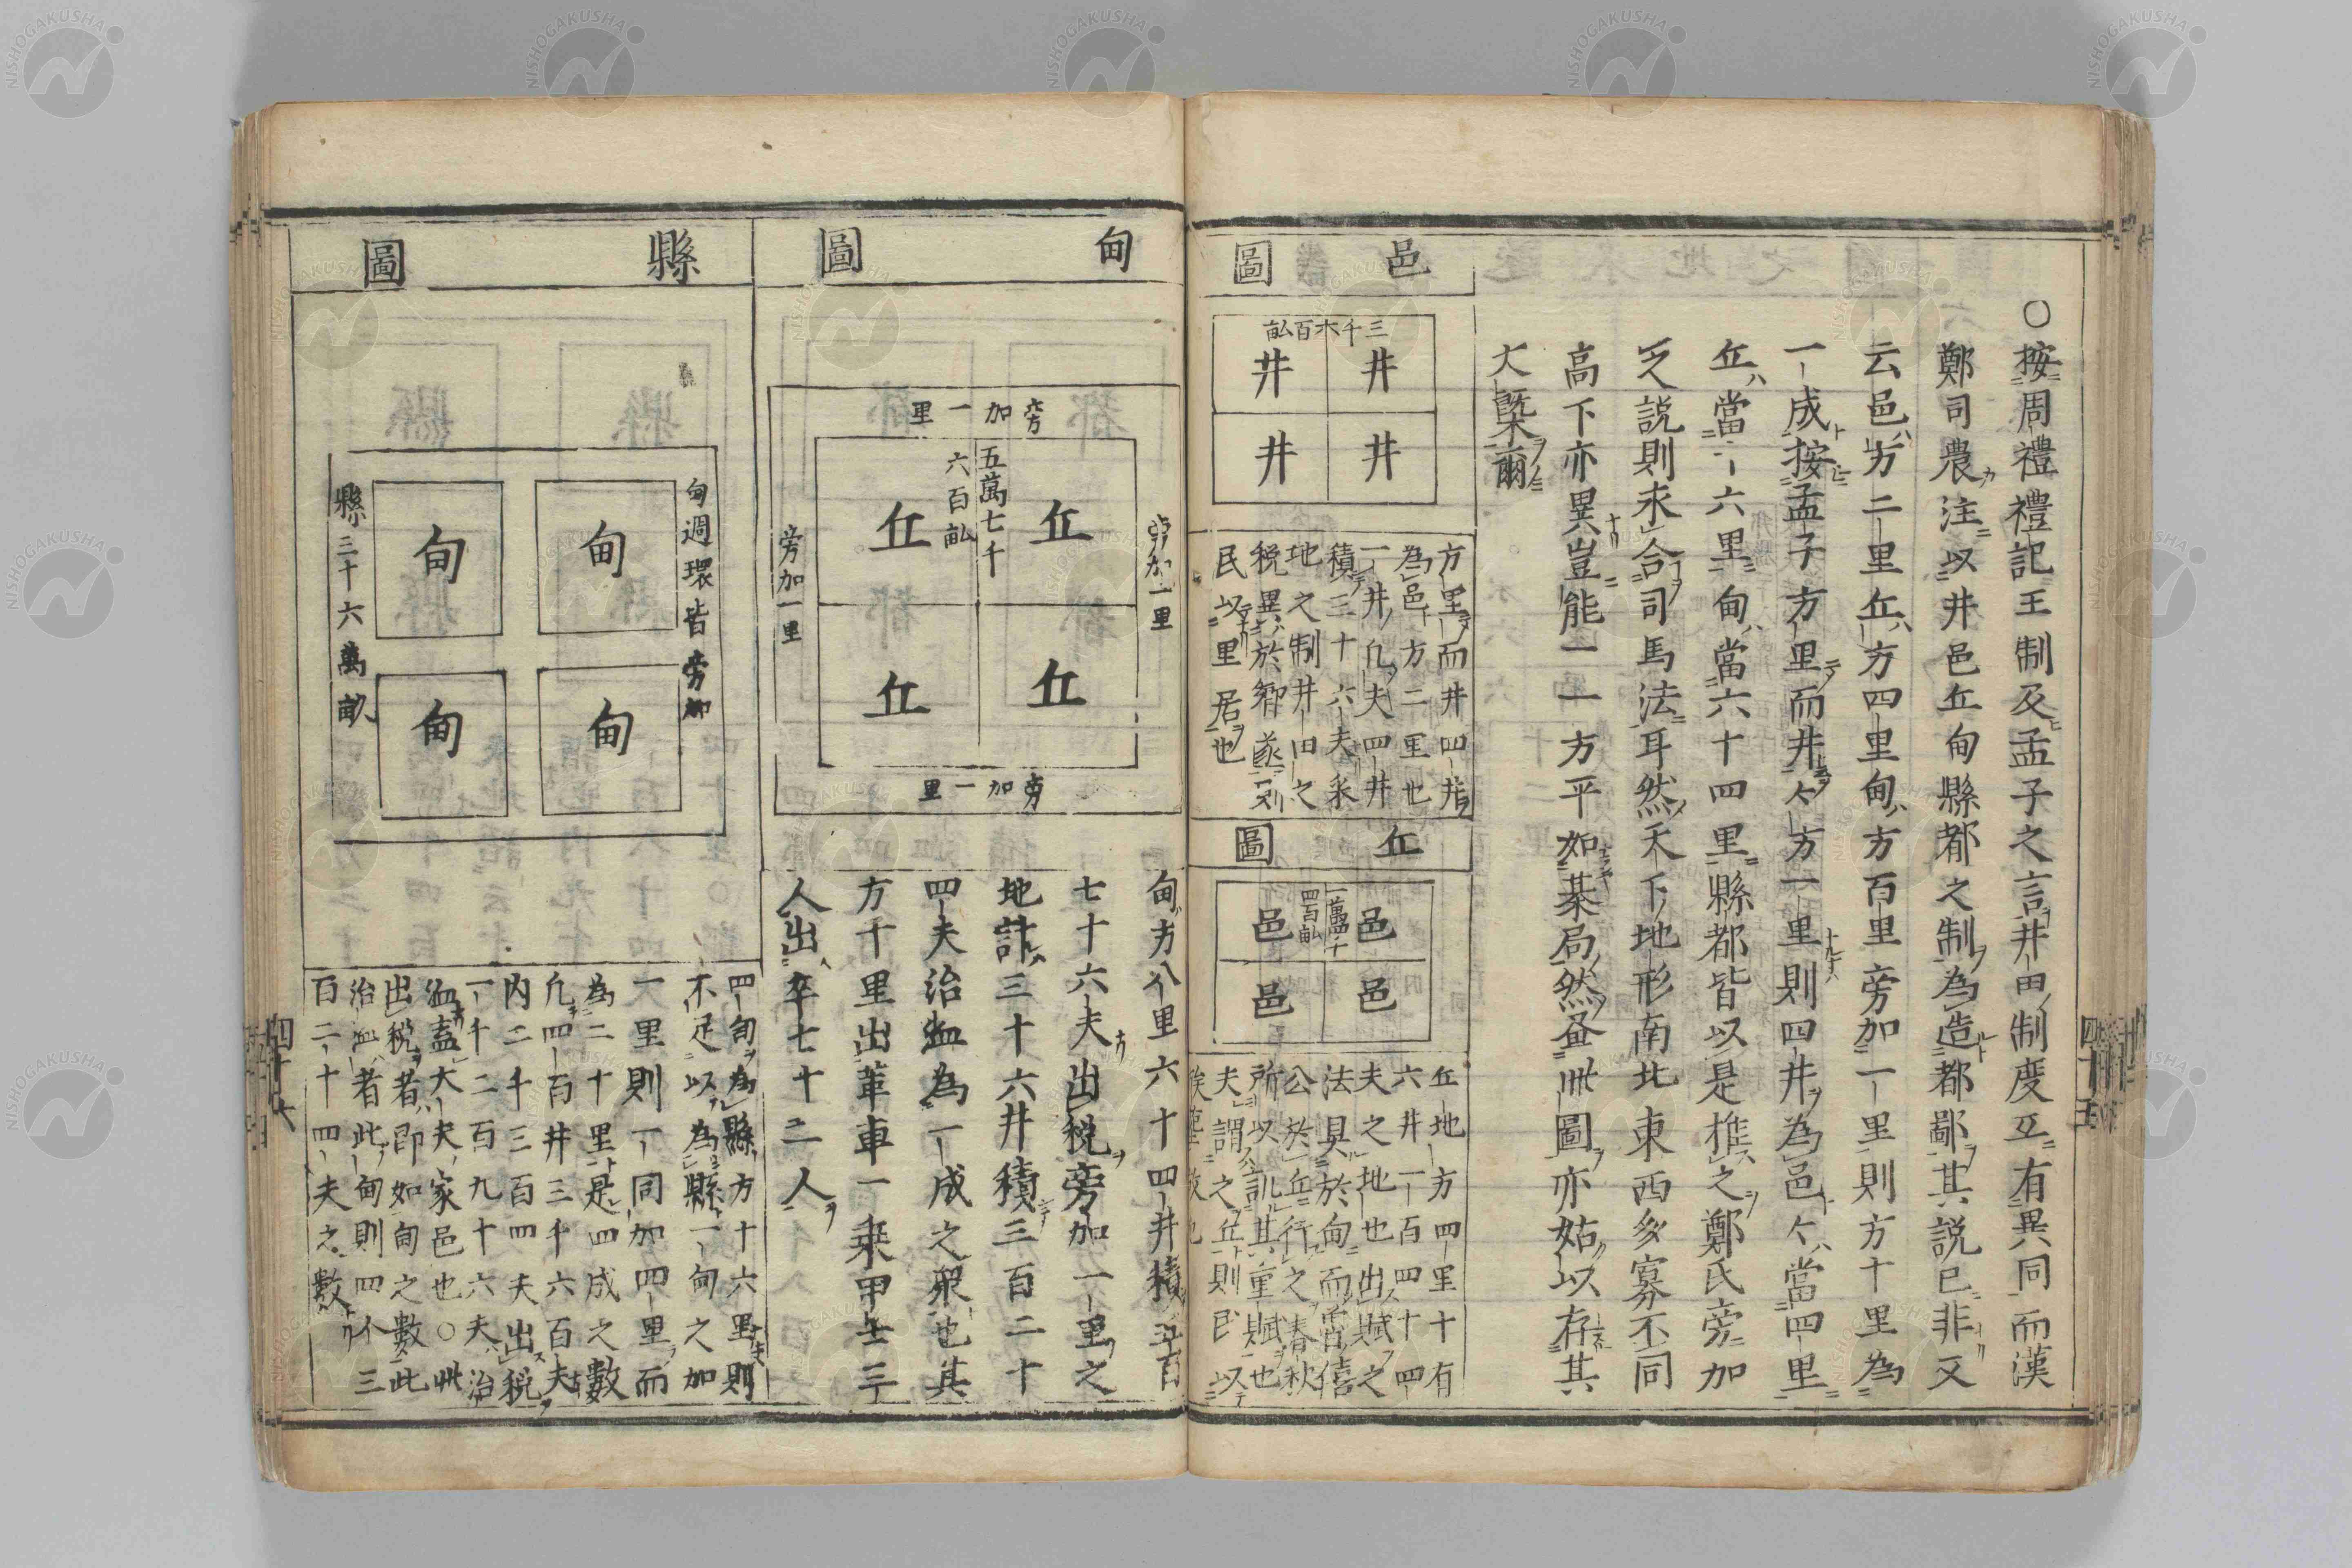 ○按周禮禮記王制及孟子之言井田制度互有異同而漢
鄭司農注以井邑丘甸縣都之制為造都鄙其説已非又
云邑方二里丘方四里甸方百里旁加一里則方十里為
一成按孟子方里而井今方一里則四井為邑今當四里
丘當一六里甸當六十四里縣都皆以是推之鄭氏旁加
之説則求合司馬法耳然天下地形南北東西多寡不同
高下亦異豈能一一方平如棊局然金此圖亦姑以存其
大槩爾
邑圖
三千六百畝
井
井
井
井
方里而井四井
為邑方二里也
一井九夫四井
積三十六夫釆
地之制井田之
税異於鄉遂
民以里居也
丘圖
一萬四千
四百畝
邑
邑
邑
邑
丘地方四里十有
六井一百四十四
夫之地也出賦之
法具於甸而魯僖
公於丘行之春秋
所以譏其重賦也
夫謂之丘則已以
四十五
甸圖
旁加一里
旁加一里
旁加一里
旁加一里
五萬七千
六百畝
丘
丘
丘
丘
甸方八里六十四井積五百
七十六夫出税旁加一里之
地計三十六井積三百二十
四夫治洫為一成之衆也其
方千里出革車一乗甲士三
人出卒七十二人
縣圖
甸週環皆旁加
甸
甸
甸
甸
縣三十六萬畝
四甸為縣方十六里則
不足以為縣一甸之加
一里則一同加四里而
為二十里是四成之數
凡四百井三千六百夫
内二千三百四夫出税
一千二百九十六夫治
洫蓋大夫家邑也○此
出税者即如甸之數此
治洫者此甸則四个三
百二十四夫之數
四十六